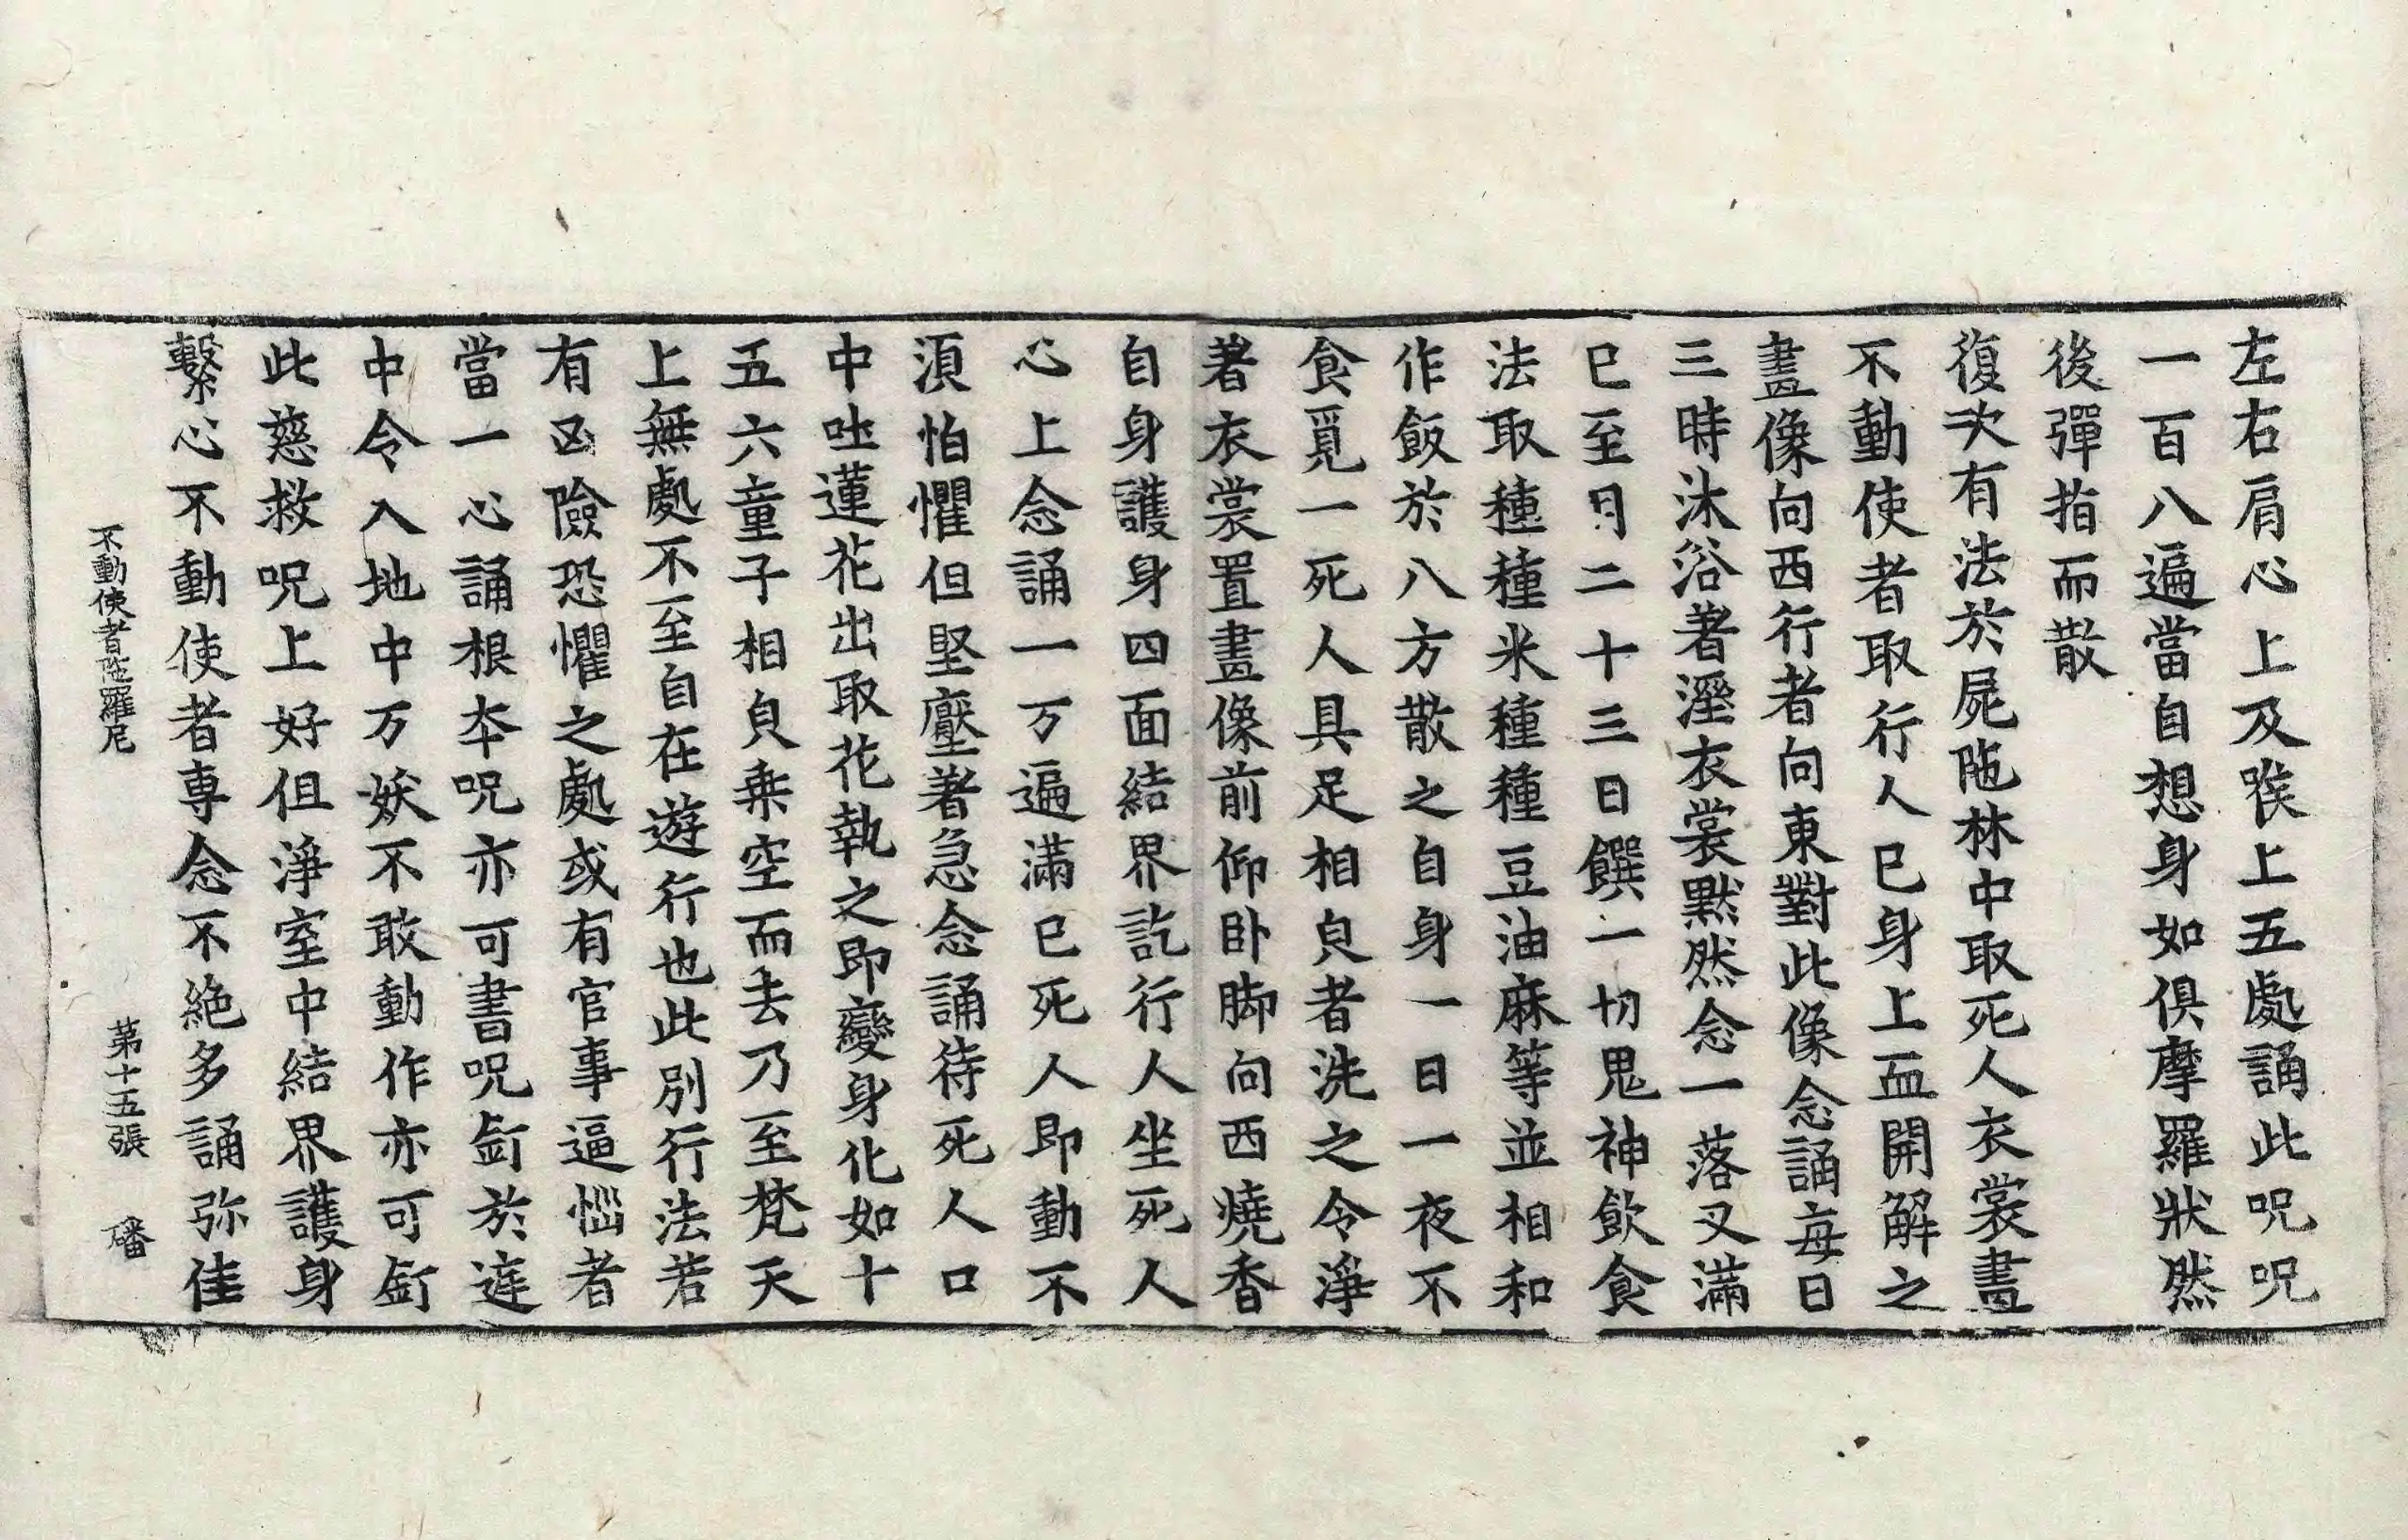 左右肩心上及㗋上五處誦此呪呪
一百八遍當自想身如俱摩羅狀然
後彈指而散
復次有法於屍陁林中取死人衣裳畫
不動使者取行人已身上血開解之
畫像向西行者向東對此像念誦每日
三時沐浴著溼衣裳默然念一落叉滿
已至月二十三日饌一切鬼神飲食
法取種種米種種豆油麻等並相和
作飯於八方散之自身一日一夜不
食覓一死人具足相皃者洗之令淨
著衣裳置畫像前仰卧脚向西燒香
自身護身四面結界訖行人坐死人
心上念誦一万遍滿已死人即動不
湏怕懼但堅壓著急念誦待死人口
中吐蓮花出取花執之即變身化如十
五六童子相皃乗空而去乃至梵天
上無處不至自在遊行也此別行法若
有凶險恐懼之處或有官事逼惱者
當一心誦根夲呪亦可書呪釘於𨓍
中令入地中万妖不敢動作亦可釘
此慈救呪上好但淨室中結界護身
繫心不動使者専念不絶多誦弥佳
不動使者陁羅尼 第十五張 磻